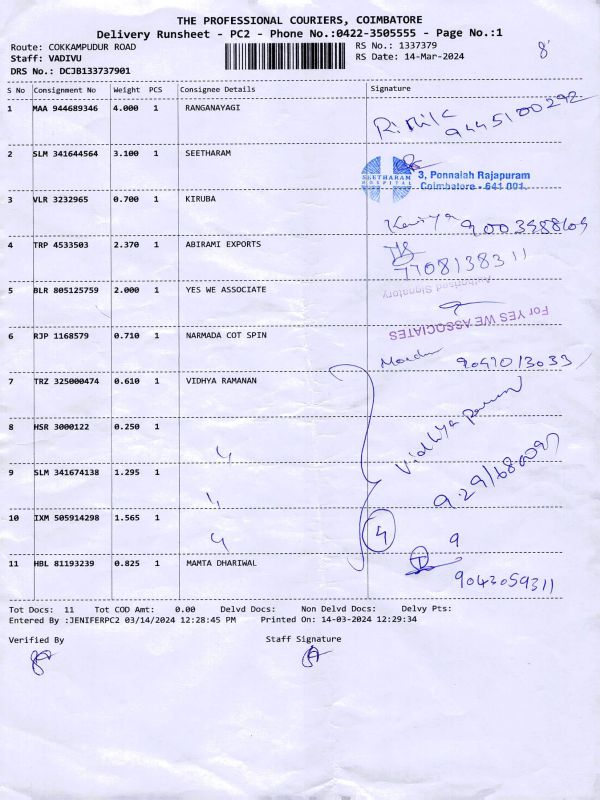 THE PROFESSIONAL COURIERS, COIMBATORE
Delivery Runsheet - PC2 - Phone No.:0422-3505555 - Page No.:1
Route: COKKAMPUDUR ROAD RS No.: 1337379
Staff: VADIVU RS Date: 14-Mar-2024
DRS No.: DCJB133737901
S No Consignment No Weight PCS Consignee Details Signature
1 MAA 944689346 4.000 1 RANGANAYAGI
9445100292
2 SLM 341644564 3.100 1 SEETHARAM
SEETHARAM HOSPITAL 3, Ponnaiah Rajapuram
Coimbatore - 641 001.
3 VLR 3232965 0.700 1 KIRUBA
4 TRP 4533503 2.370 1 ABIRAMI EXPORTS
7708138311
5 BLR 805125759 2.000 1 YES WE ASSOCIATE
For YES WE ASSOCIATES
Authorised Signatory
6 RJP 1168579 0.710 1 NARMADA COT SPIN
7 TRZ 325000474 0.610 1 VIDHYA RAMANAN
8 HSR 3000122 0.250 1
Vidhya
9 SLM 341674138 1.295 1
10 IXM 505914298 1.565 1
4
9
11 HBL 81193239 0.825 1 MAMTA DHARIWAL
9043059311
Tot Docs: 11 Tot COD Amt: 0.00 Delvd Docs: Non Delvd Docs: Delvy Pts:
Entered By :JENIFERPC2 03/14/2024 12:28:45 PM Printed On: 14-03-2024 12:29:34
Verified By Staff Signature